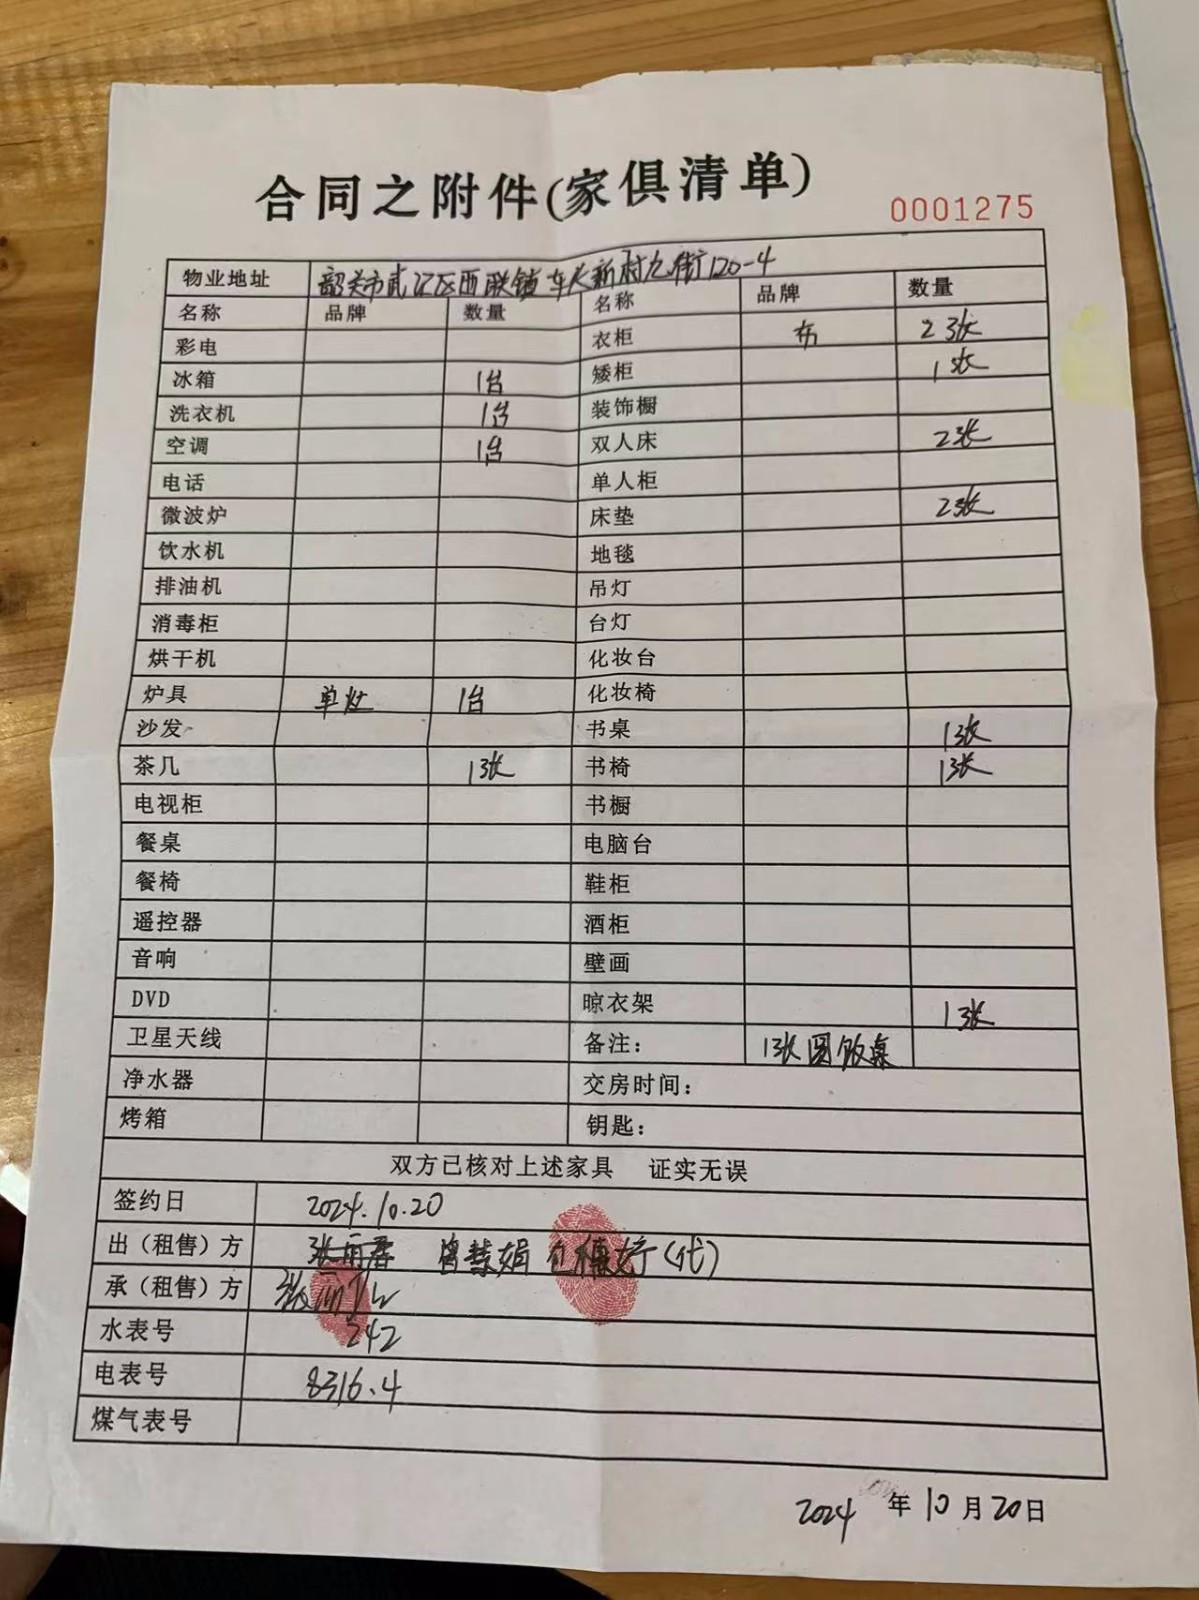 合同之附件(家俱清单)
0001275
物业地址 韶关市武江区西联镇车头新村九街120-4
名称 品牌 数量 名称 品牌 数量
彩电 衣柜 布 2张
冰箱 1台 矮柜 1张
洗衣机 1台 装饰橱
空调 1台 双人床 2张
电话 单人柜
微波炉 床垫 2张
饮水机 地毯
排油机 吊灯
消毒柜 台灯
烘干机 化妆台
炉具 单灶 1台 化妆椅
沙发 书桌 1张
茶几 1张 书椅 1张
电视柜 书橱
餐桌 电脑台
餐椅 鞋柜
遥控器 酒柜
音响 壁画
DVD 晾衣架 1张
卫星天线 备注： 1张圆饭桌
净水器 交房时间：
烤箱 钥匙：
双方已核对上述家具 证实无误
签约日 2024.10.20
出（租售）方 曾慧娟 (代)
承（租售）方
水表号 242
电表号 8316.4
煤气表号
2024 年 10 月 20 日